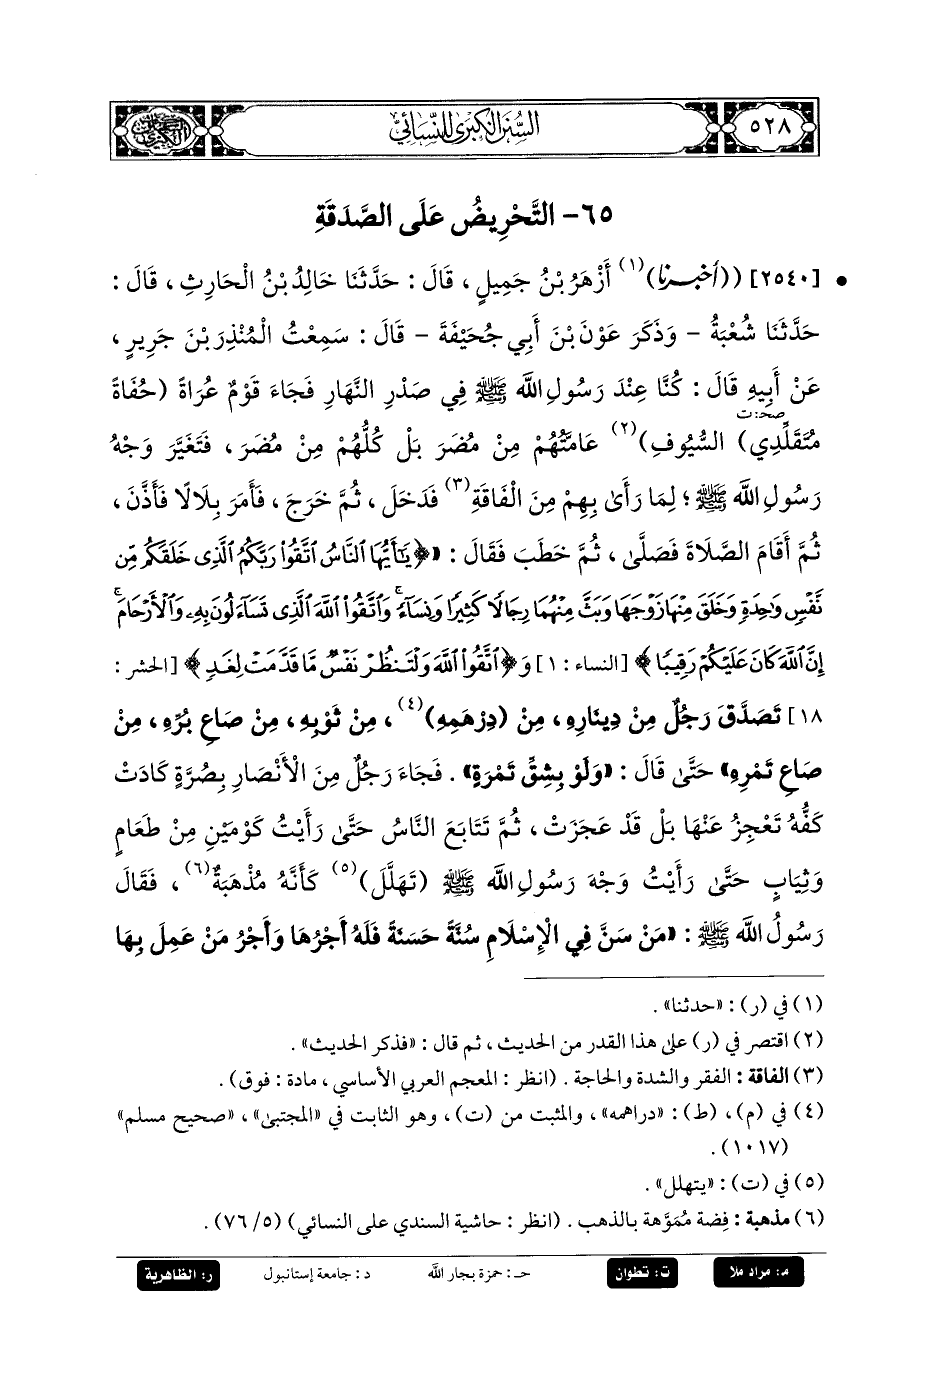 ٥٢٨
السُّنَنُ الْكِبْرَى لِلنَّسَائِيِّ
٦٥- التَّحْرِيضُ عَلَى الصَّدَقَةِ
• [٢٥٤٠] ((أخبرنا)(١) أَزْهَرُ بْنُ جَمِيلٍ، قَالَ: حَدَّثَنَا خَالِدُ بْنُ الْحَارِثِ، قَالَ:
حَدَّثَنَا شُعْبَةُ - وَذَكَرَ عَوْنَ بْنَ أَبِي جُحَيْفَةَ - قَالَ: سَمِعْتُ الْمُنْذِرَ بْنَ جَرِيرٍ،
عَنْ أَبِيهِ قَالَ: كُنَّا عِنْدَ رَسُولِ اللَّه ﷺ فِي صَدْرِ النَّهَارِ فَجَاءَ قَوْمٌ عُرَاةً (حُفَاةً
صحـ: ت
مُتَقَلِّدِي) السُّيُوفِ)(٢) عَامَّتُهُمْ مِنْ مُضَرَ بَلْ كُلُّهُمْ مِنْ مُضَرَ، فَتَغَيَّرَ وَجْهُ
رَسُولِ اللَّه ﷺ؛ لِمَا رَأَىٰ بِهِمْ مِنَ الْفَاقَةِ(٣) فَدَخَلَ، ثُمَّ خَرَجَ، فَأَمَرَ بِلَالًا فَأَذَّنَ،
ثُمَّ أَقَامَ الصَّلَاةَ فَصَلَّىٰ، ثُمَّ خَطَبَ فَقَالَ: «﴿يَٰٓأَيُّهَا ٱلنَّاسُ ٱتَّقُوا۟ رَبَّكُمُ ٱلَّذِى خَلَقَكُم مِّن
نَّفْسٍ وَٰحِدَةٍ وَخَلَقَ مِنْهَا زَوْجَهَا وَبَثَّ مِنْهُمَا رِجَالًا كَثِيرًا وَنِسَآءً ۚ وَٱتَّقُوا۟ ٱللَّهَ ٱلَّذِى تَسَآءَلُونَ بِهِۦ وَٱلْأَرْحَامَ ۚ
إِنَّ ٱللَّهَ كَانَ عَلَيْكُمْ رَقِيبًا﴾ [النساء: ١] وَ﴿ٱتَّقُوا۟ ٱللَّهَ وَلْتَنظُرْ نَفْسٌ مَّا قَدَّمَتْ لِغَدٍ﴾ [الحشر:
١٨] تَصَدَّقَ رَجُلٌ مِنْ دِينَارِهِ، مِنْ (دِرْهَمِهِ)(٤)، مِنْ ثَوْبِهِ، مِنْ صَاعِ بُرِّهِ، مِنْ
صَاعِ تَمْرِهِ» حَتَّىٰ قَالَ: «وَلَوْ بِشِقِّ تَمْرَةٍ». فَجَاءَ رَجُلٌ مِنَ الْأَنْصَارِ بِصُرَّةٍ كَادَتْ
كَفُّهُ تَعْجِزُ عَنْهَا بَلْ قَدْ عَجَزَتْ، ثُمَّ تَتَابَعَ النَّاسُ حَتَّىٰ رَأَيْتُ كَوْمَيْنِ مِنْ طَعَامٍ
وَثِيَابٍ حَتَّىٰ رَأَيْتُ وَجْهَ رَسُولِ اللَّه ﷺ (تَهَلَّلَ)(٥) كَأَنَّهُ مُذْهَبَةٌ(٦)، فَقَالَ
رَسُولُ اللَّه ﷺ: «مَنْ سَنَّ فِي الْإِسْلَامِ سُنَّةً حَسَنَةً فَلَهُ أَجْرُهَا وَأَجْرُ مَنْ عَمِلَ بِهَا
(١) في (ر): «حدثنا».
(٢) اقتصر في (ر) على هذا القدر من الحديث، ثم قال: «فذكر الحديث».
(٣) الفاقة: الفقر والشدة والحاجة. (انظر: المعجم العربي الأساسي، مادة: فوق).
(٤) في (م)، (ط): «دراهمه»، والمثبت من (ت)، وهو الثابت في «المجتبى»، «صحيح مسلم»
(١٠١٧).
(٥) في (ت): «يتهلل».
(٦) مذهبة: فضة مُمَوَّهة بالذهب. (انظر: حاشية السندي على النسائي) (٥/ ٧٦).
م: مراد ملا ت: تطوان حـ: حمزة بجار الله د: جامعة إستانبول ر: الظاهرية